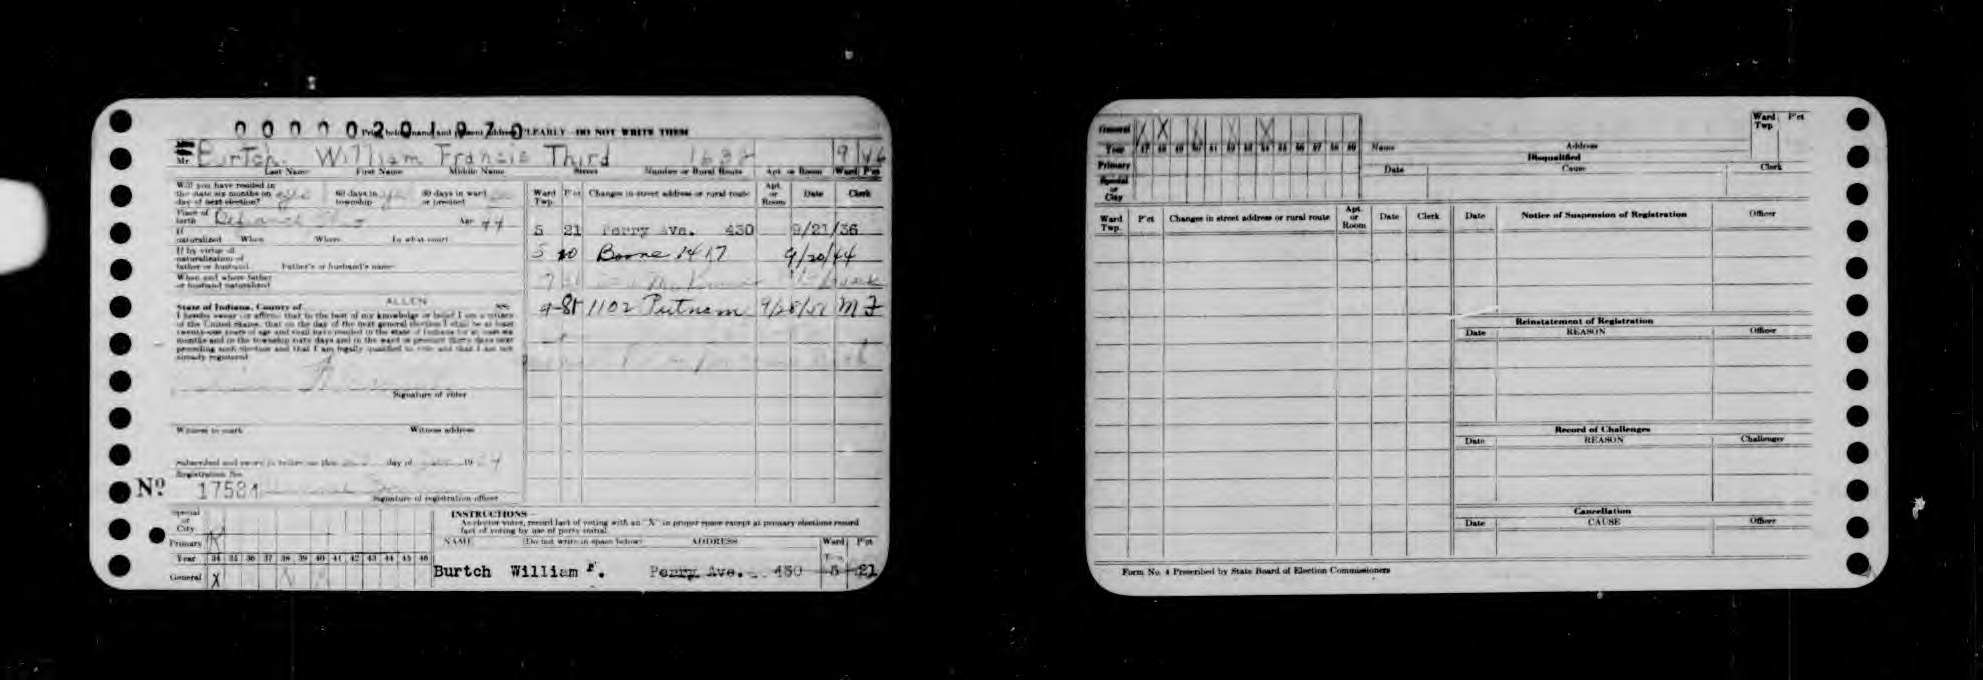 00000201970
Print below name and present address CLEARLY—DO NOT WRITE THEM
Mr. Burtch William Francis Third 1632 9 46
Last Name First Name Middle Name Street Number or Rural Route Apt. or Room Ward P'ct
Will you have resided in the state six months on day of next election? yes 60 days in township 30 days in ward or precinct
Place of birth Defiance Ohio Age 44
If naturalized When Where In what court
If by virtue of naturalization of father or husband Father's or husband's name
When and where father or husband naturalized
State of Indiana, County of ALLEN SS:
I hereby swear or affirm that to the best of my knowledge or belief I am a citizen
of the United States, that on the day of the next general election I shall be at least
twenty-one years of age and shall have resided in the state of Indiana for at least six
months and in the township sixty days and in the ward or precinct thirty days next
preceding such election and that I am legally qualified to vote and that I am not
already registered
Signature of voter
Witness to mark Witness address
Subscribed and sworn to before me this day of 19
Registration No.
Nº 17584
Signature of registration officer
Ward Twp. P'ct Changes in street address or rural route Apt. or Room Date Clerk
5 21 Perry Ave. 430 9/21/36
5 20 Boone 1417 9/20/44
9-85 1102 Putnam M F
Special or City
Primary
Year 34 35 36 37 38 39 40 41 42 43 44 45 46
General X
INSTRUCTIONS—
As elector votes, record fact of voting with an "X" in proper space except at primary elections record
fact of voting by use of party initial.
NAME (Do not write in space below) ADDRESS Ward P'ct
Burtch William F. Perry Ave. 430 5 21
General X X X X X
Year 47 48 49 50 51 52 53 54 55 56 57 58 59
Primary
Special or City
Name Address Ward Twp P'ct
Disqualified
Date Cause Clerk
Ward Twp. P'ct Changes in street address or rural route Apt. or Room Date Clerk
Date Notice of Suspension of Registration Officer
Reinstatement of Registration
Date REASON Officer
Record of Challenges
Date REASON Challenger
Cancellation
Date CAUSE Officer
Form No. 4 Prescribed by State Board of Election Commissioners